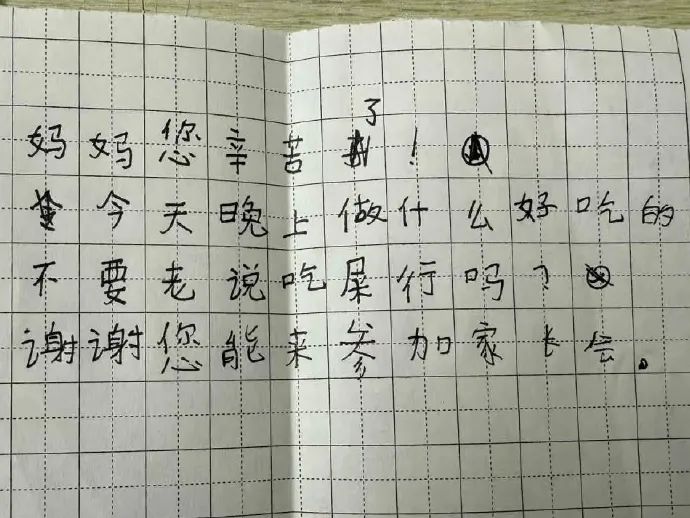 妈妈您辛苦了！
今天晚上做什么好吃的
不要老说吃屎行吗？
谢谢您能来参加家长会。